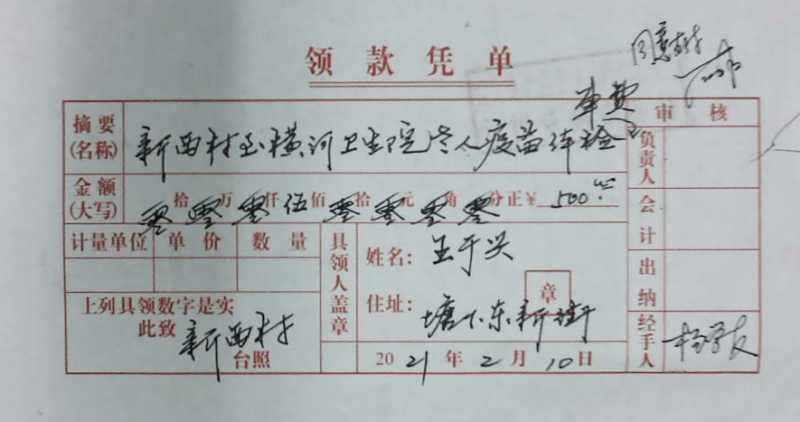 领款凭单
同意支付
审核
摘要(名称) 新西村至横河卫生院老人疫苗体检车费
金额(大写) 零拾零万零仟伍佰零拾零元零角零分正¥500.00
计量单位 单价 数量
具领人盖章
姓名: 王于兴
住址: 塘下东新街
章
上列具领数字是实
此致 新西村
台照
2021年2月10日
负责人
会计
出纳
经手人